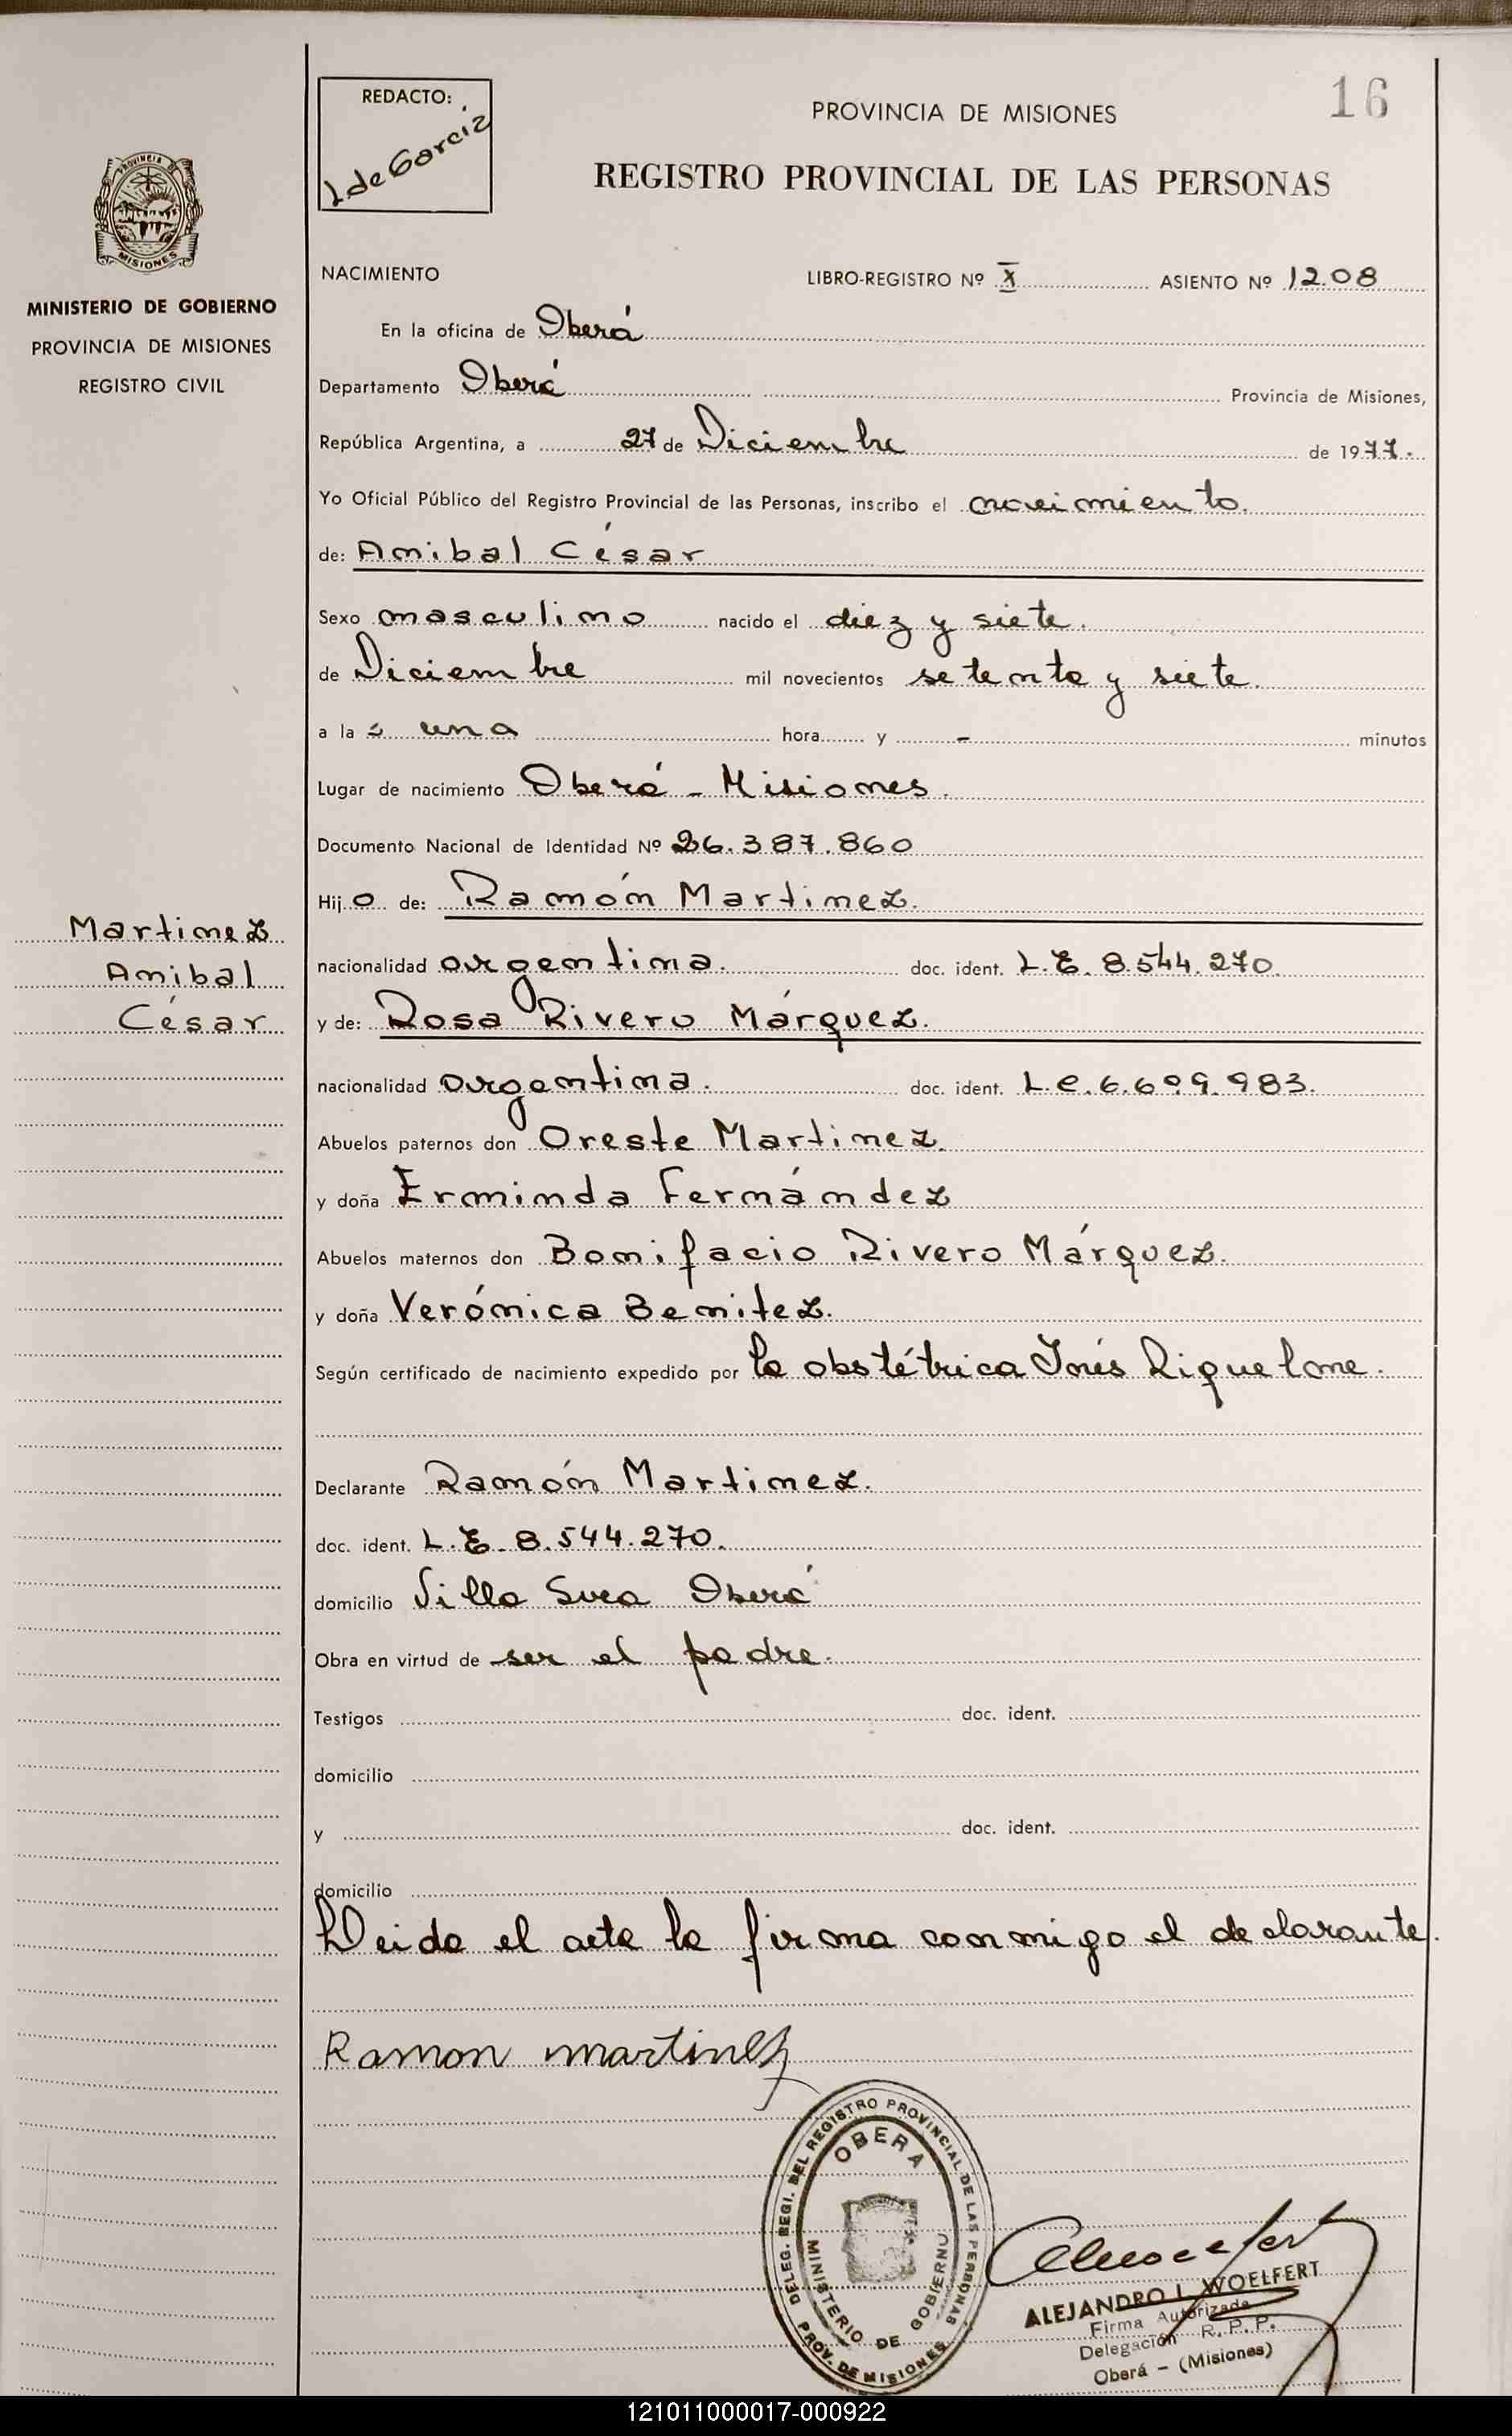 16
REDACTO:
L de Garcia
PROVINCIA DE MISIONES
REGISTRO PROVINCIAL DE LAS PERSONAS
PROVINCIA
MISIONES
MINISTERIO DE GOBIERNO
PROVINCIA DE MISIONES
REGISTRO CIVIL
NACIMIENTO LIBRO-REGISTRO Nº X ASIENTO Nº 1208
En la oficina de Oberá
Departamento Oberá Provincia de Misiones,
República Argentina, a 27 de Diciembre de 1977.
Yo Oficial Público del Registro Provincial de las Personas, inscribo el nacimiento.
de: Anibal César
Sexo masculino nacido el diez y siete.
de Diciembre mil novecientos setenta y siete.
a la s una hora y - minutos
Lugar de nacimiento Oberá - Misiones.
Documento Nacional de Identidad Nº 26.387.860
Hijo de: Ramón Martinez.
Martinez
Anibal
César
nacionalidad argentina. doc. ident. L.E. 8.544.270.
y de: Rosa Rivero Márquez.
nacionalidad argentina. doc. ident. L.C. 6.699.983.
Abuelos paternos don Oreste Martinez.
y doña Erminda Fernández
Abuelos maternos don Bonifacio Rivero Márquez.
y doña Verónica Benitez.
Según certificado de nacimiento expedido por la obstétrica Inés Riquelme.
Declarante Ramón Martinez.
doc. ident. L.E. 8.544.270.
domicilio Villa Svea Oberá
Obra en virtud de ser el padre.
Testigos doc. ident.
domicilio
y doc. ident.
domicilio
Leida el acta la firma conmigo el declarante.
Ramon martinez
DELEG. REGI. DEL REGISTRO PROVINCIAL DE LAS PERSONAS
OBERA
MINISTERIO DE GOBIERNO
PROV. DE MISIONES
ALEJANDRO L. WOELFERT
Firma Autorizada
Delegación R. P. P.
Oberá - (Misiones)
121011000017-000922